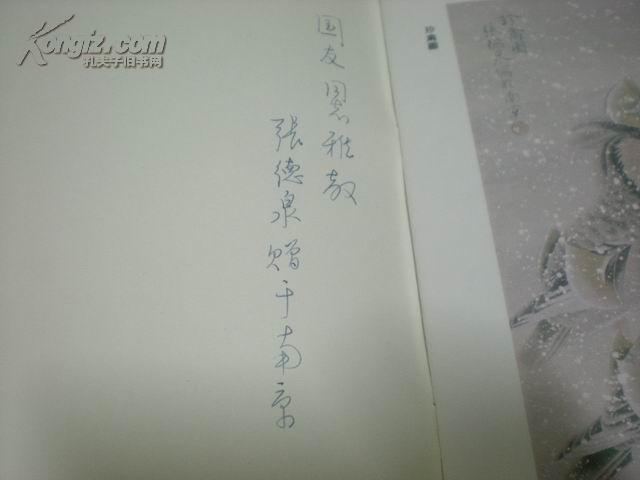 Kongfz.com
孔夫子旧书网
国友同志雅教
張德泉赠于南京
珍禽图